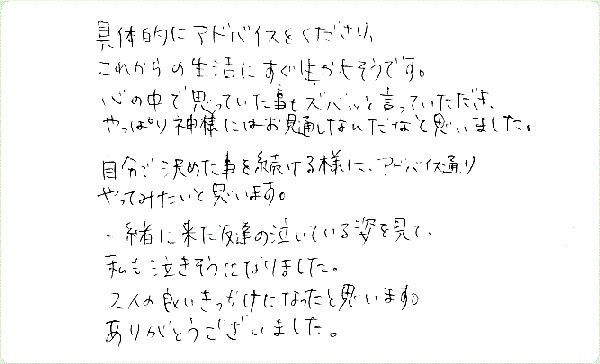 具体的にアドバイスをくださり、
これからの生活にすぐ生かせそうです。
心の中で思っていた事もズバッと言っていただき、
やっぱり神様にはお見通しなんだなと思いました。
自分で決めた事を続ける様に、アドバイス通り
やってみたいと思います。
一緒に来た友達の泣いている姿を見て、
私も泣きそうになりました。
2人の良いきっかけになったと思います。
ありがとうございました。